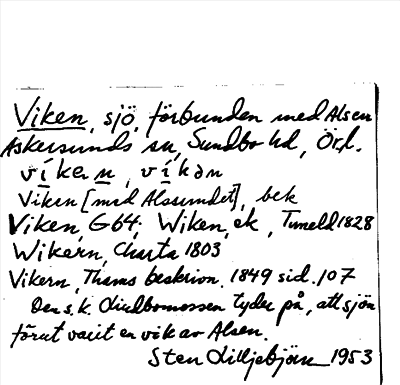 Viken, sjö, förbunden med Alsen
Askersunds sn, Sundbo hd, Örl.
víkeṇ, víkən
Viken [med Alssundet], bek
Viken, G64; Wiken, ek, Tuneld 1828
Wikern, Charta 1803
Vikern, Thams beskrivn. 1849 sid. 107
Den s.k. Lindbomossen tyder på, att sjön
förut varit en vik av Alsen.
Sten Lilljebjörn 1953